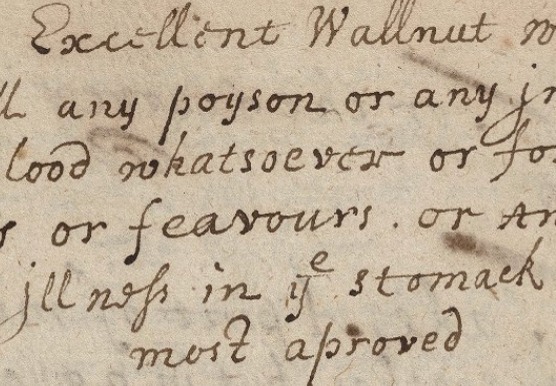 Excellent Wallnut w
ll any poyson or any in
lood whatsoever or fo
s or feavours . or An
illness in yͤ stomack
most aproved